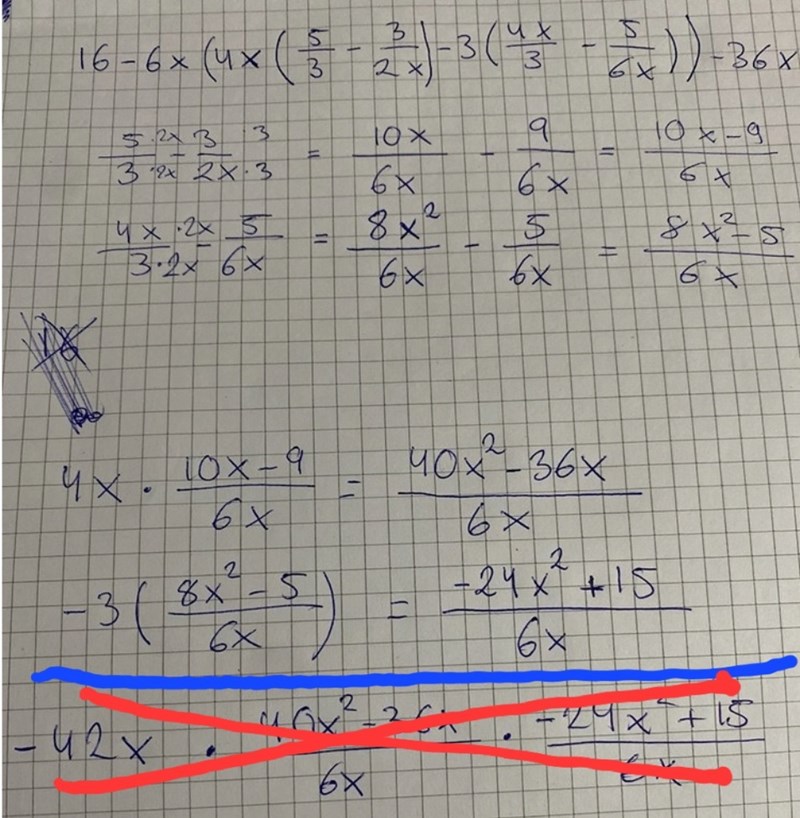 16 - 6x (4x (5/3 - 3/2x) - 3 (4x/3 - 5/6x)) - 36x
5·2x/3·2x - 3·3/2x·3 = 10x/6x - 9/6x = 10x-9/6x
4x·2x/3·2x - 5/6x = 8x²/6x - 5/6x = 8x²-5/6x
16
4x · 10x-9/6x = 40x²-36x/6x
-3 (8x²-5/6x) = -24x²+15/6x
-42x · 40x²-36x/6x · -24x²+15/6x